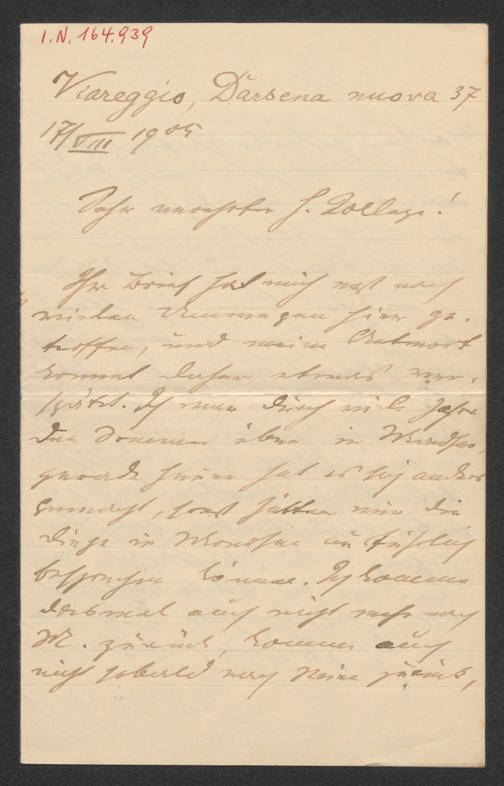 I.N. 164.939
Viareggio, Darsena nuova 37
17/VIII 1905
Sehr verehrter H. Kollege!
Ihr Brief hat mich erst nach
vielen hier ge-
troffen, und meine Antwort
kommt daher etwas ver-
spätet. Ich war durch viele Jahre
den Sommer über in
gerade heuer hat es sich anders
gemacht, sonst hätten wir die
Dinge in ausführlich
besprechen können. Ich komme
diesmal auch nicht mehr nach
M. zurück, komme auch
nicht sobald nach Wien zurück,